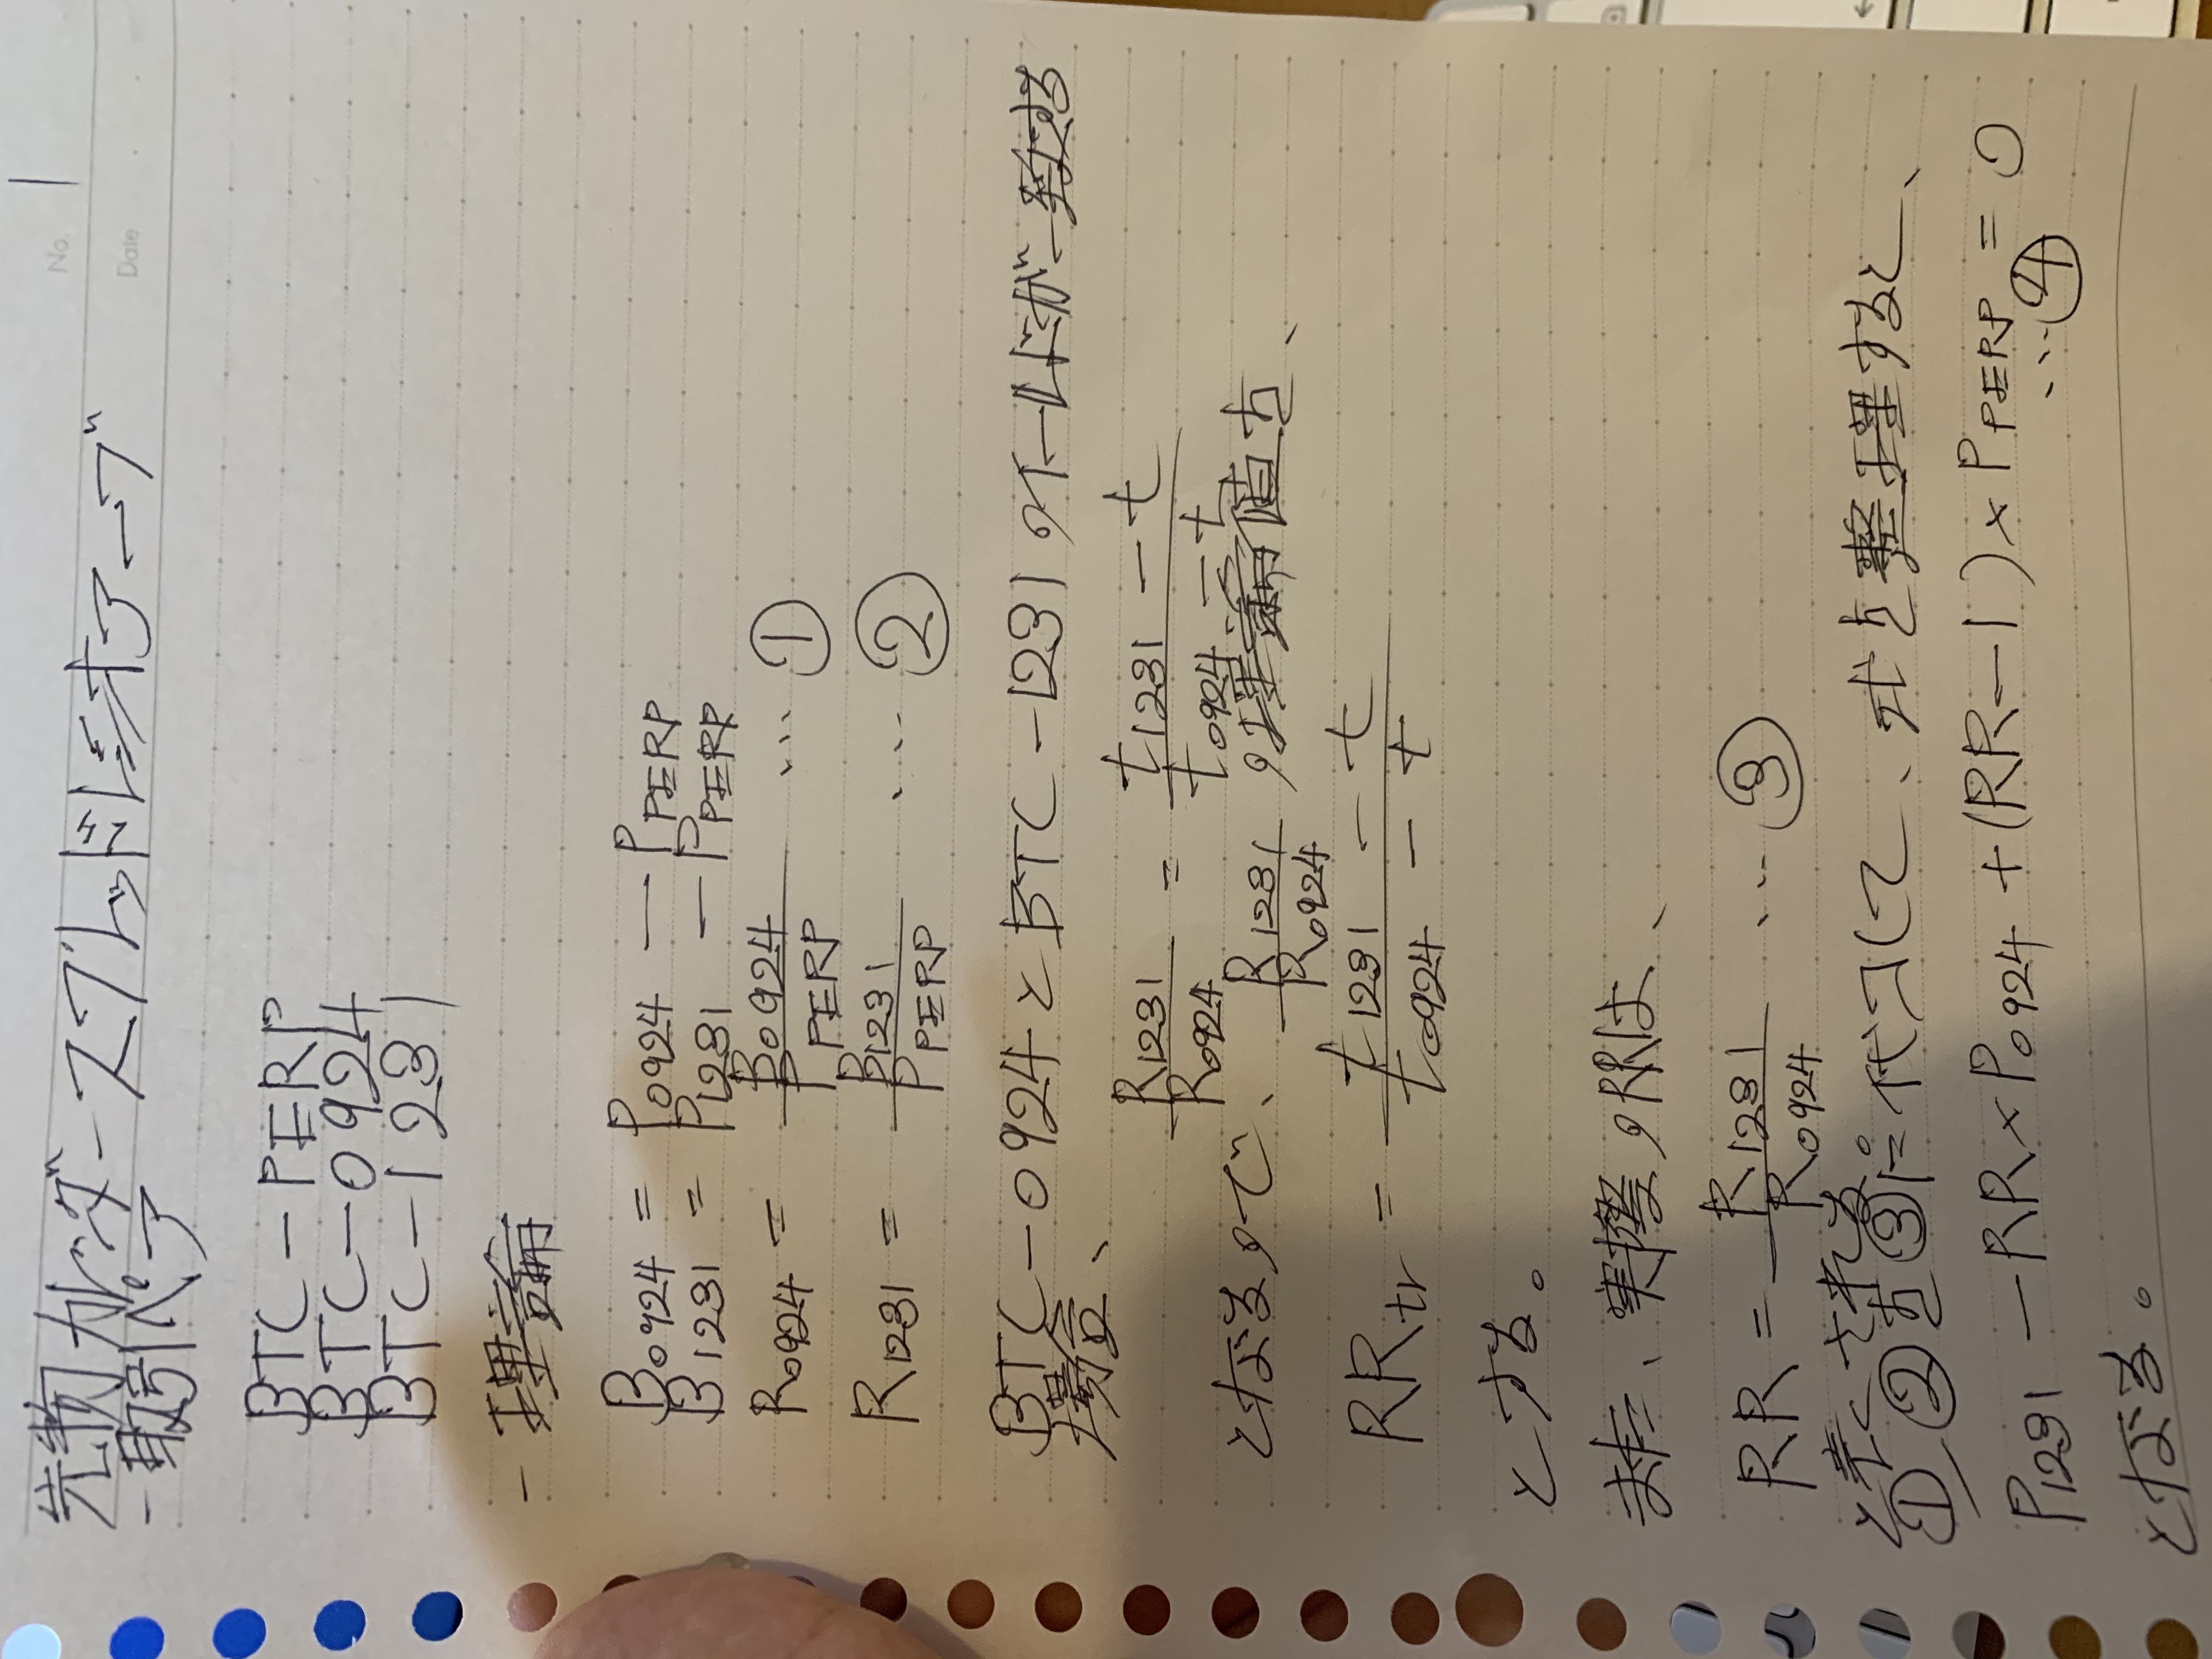 No. 1
先物カレンダースプレッドレシオアーブ
Date
- 取引ペア
BTC-PERP
BTC-0924
BTC-1231
- 理論
B0924 = P0924 - PPERP
B1231 = P1231 - PPERP
R0924 = B0924 / PPERP … ①
R1231 = B1231 / PPERP … ②
BTC-0924とBTC-1231のイールドが一致する
場合、
R1231 / R0924 = t1231 - t / t0924 - t
となるので、 R1231 / R0924 の理論値を、
RRtr = t1231 - t / t0924 - t
とする。
また、実際のRRは、
RR = R1231 / R0924 … ③
と表くされる。
①、②を③に代入して、式を整理すると、
P1231 - RR×P0924 + (RR-1)×PPERP = 0
… ④
となる。